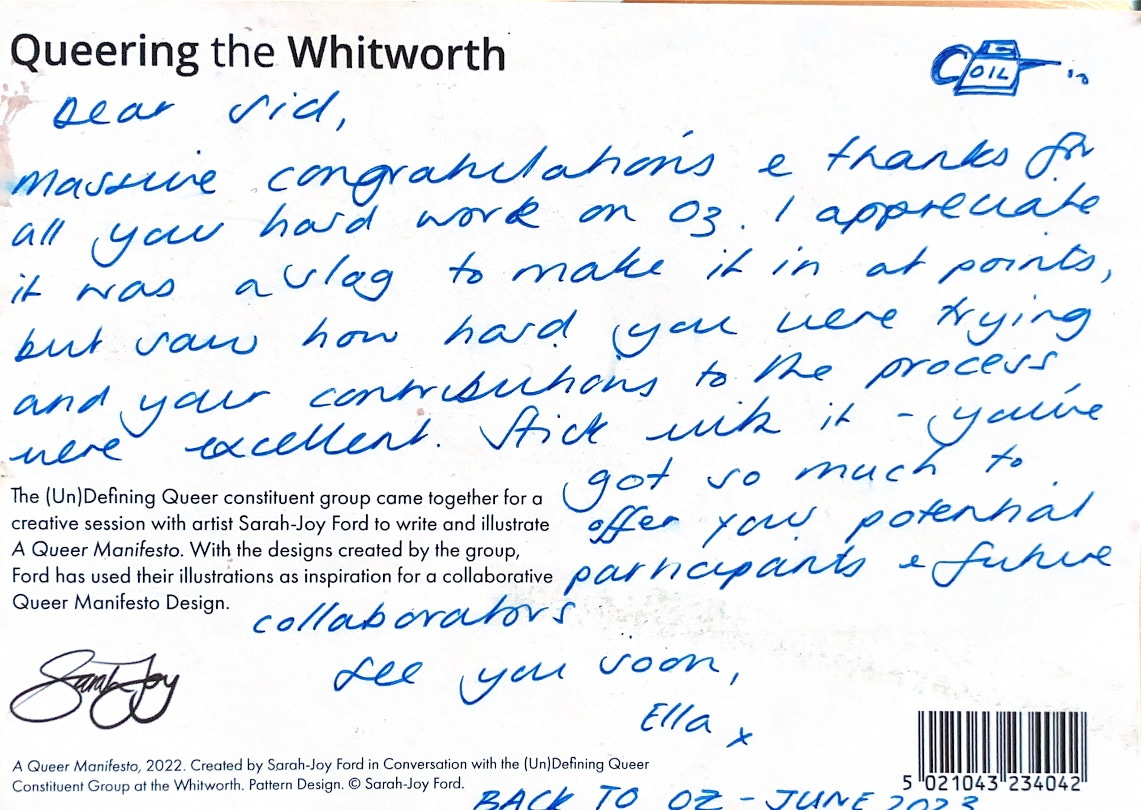 Queering the Whitworth
COIL
Dear Sid,
Massive congratulations & thanks for
all your hard work on Oz. I appreciate
it was a slog to make it in at points,
but saw how hard you were trying
and your contributions to the process
were excellent. Stick with it - you've
got so much to
offer your potential
participants & future
collaborators
See you soon,
Ella x
The (Un)Defining Queer constituent group came together for a
creative session with artist Sarah-Joy Ford to write and illustrate
A Queer Manifesto. With the designs created by the group,
Ford has used their illustrations as inspiration for a collaborative
Queer Manifesto Design.
Sarah Joy
A Queer Manifesto, 2022. Created by Sarah-Joy Ford in Conversation with the (Un)Defining Queer
Constituent Group at the Whitworth. Pattern Design. © Sarah-Joy Ford.
5 021043 234042
BACK TO OZ - JUNE 2023